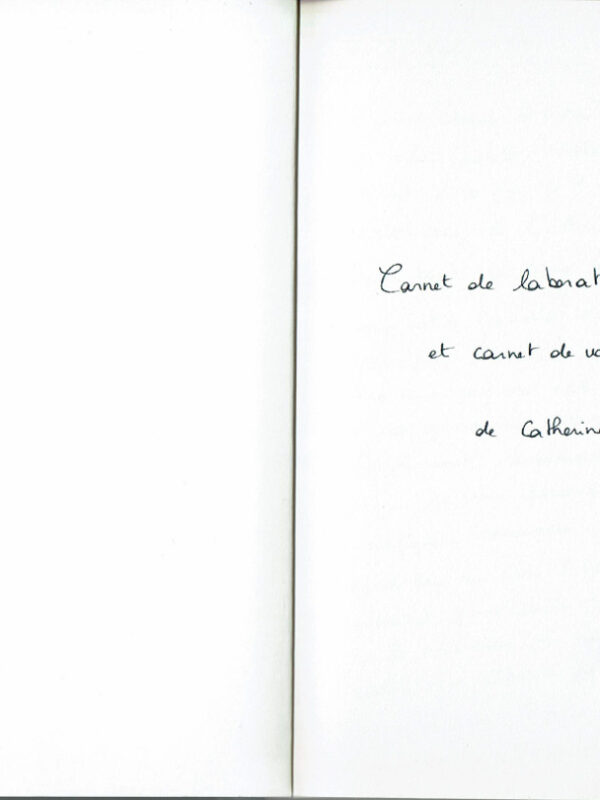 Carnet de laborat
et carnet de vo
de Catherine